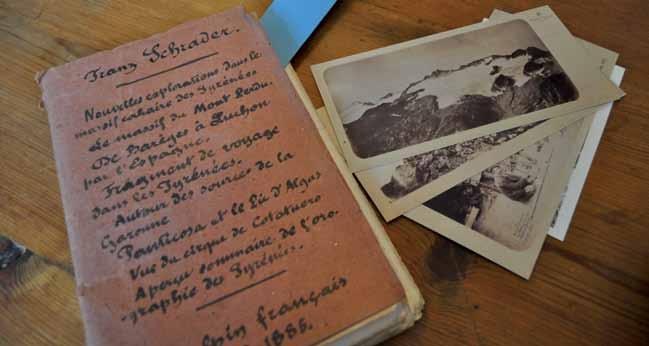 Franz Schrader.
Nouvelles explorations dans le
massif calcaire des Pyrénées
Le massif du Mont Perdu.
De Barèges à Luchon
par l'Espagne.
Fragment de voyage
dans les Pyrénées.
Autour des sources de la
Garonne
Panticosa et le Pic d'Algas
Vue du cirque de Cotatuero
Aperçu sommaire de l'oro-
graphie des Pyrénées.
français
1885.